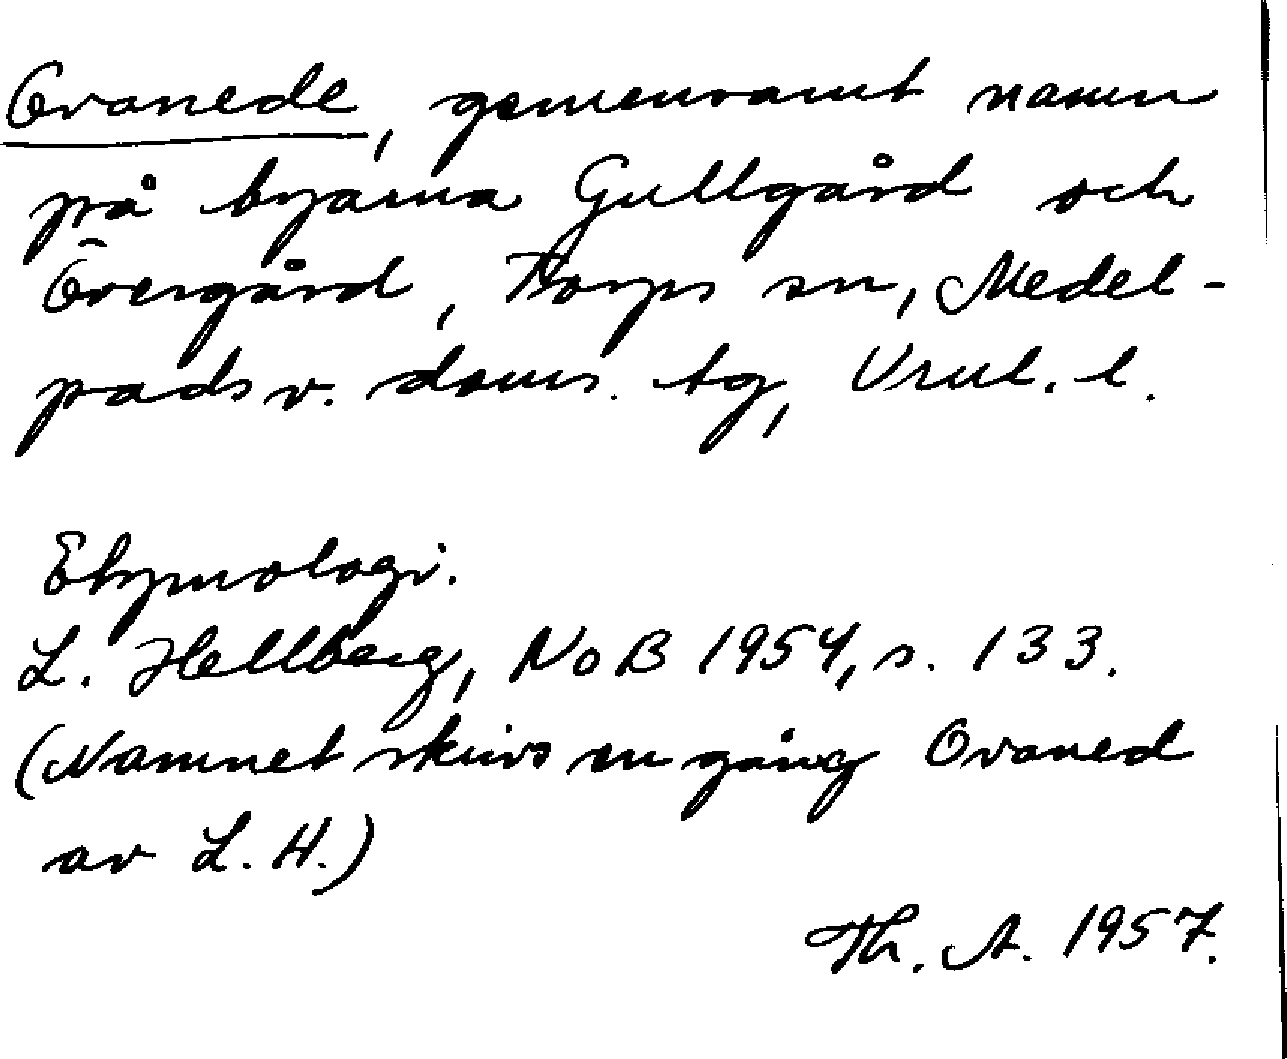 Ovanede, gemensamt namn
på byarna Gullgård och
Övergård, Torps sn, Medel-
pads v. doms. tg, Vnl. l.
Etymologi.
L. Hellberg, NoB 1954, s. 133.
(Namnet skrivs en gång Ovaned
av L. H.)
Th. A. 1957.